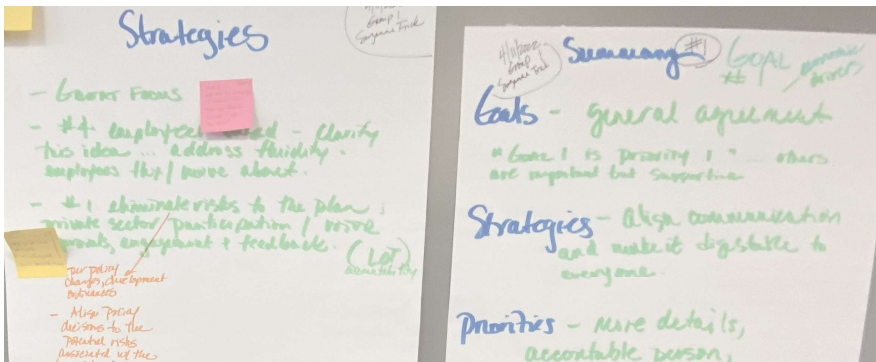 Strategies
Group 1
Suzanne Frick
- Grant Focus
- #4 employee - Clarity
this idea ... address fluidity.
employees that / move about.
- #1 eliminate risks to the plan,
private sector participation / more
engagement + feedback.
(LOT)
- per policy
changes, development
- Align policy
decisions to the
potential risks
associated w/ the
4/11/2022
Group
Suzanne Frick
Summary #1
GOAL
#
economic
drivers
Goals - general agreement
"Goal 1 is priority 1" ... others
are important but supportive
Strategies - Align communication
and make it digestable to
everyone.
Priorities - More details,
accountable person,